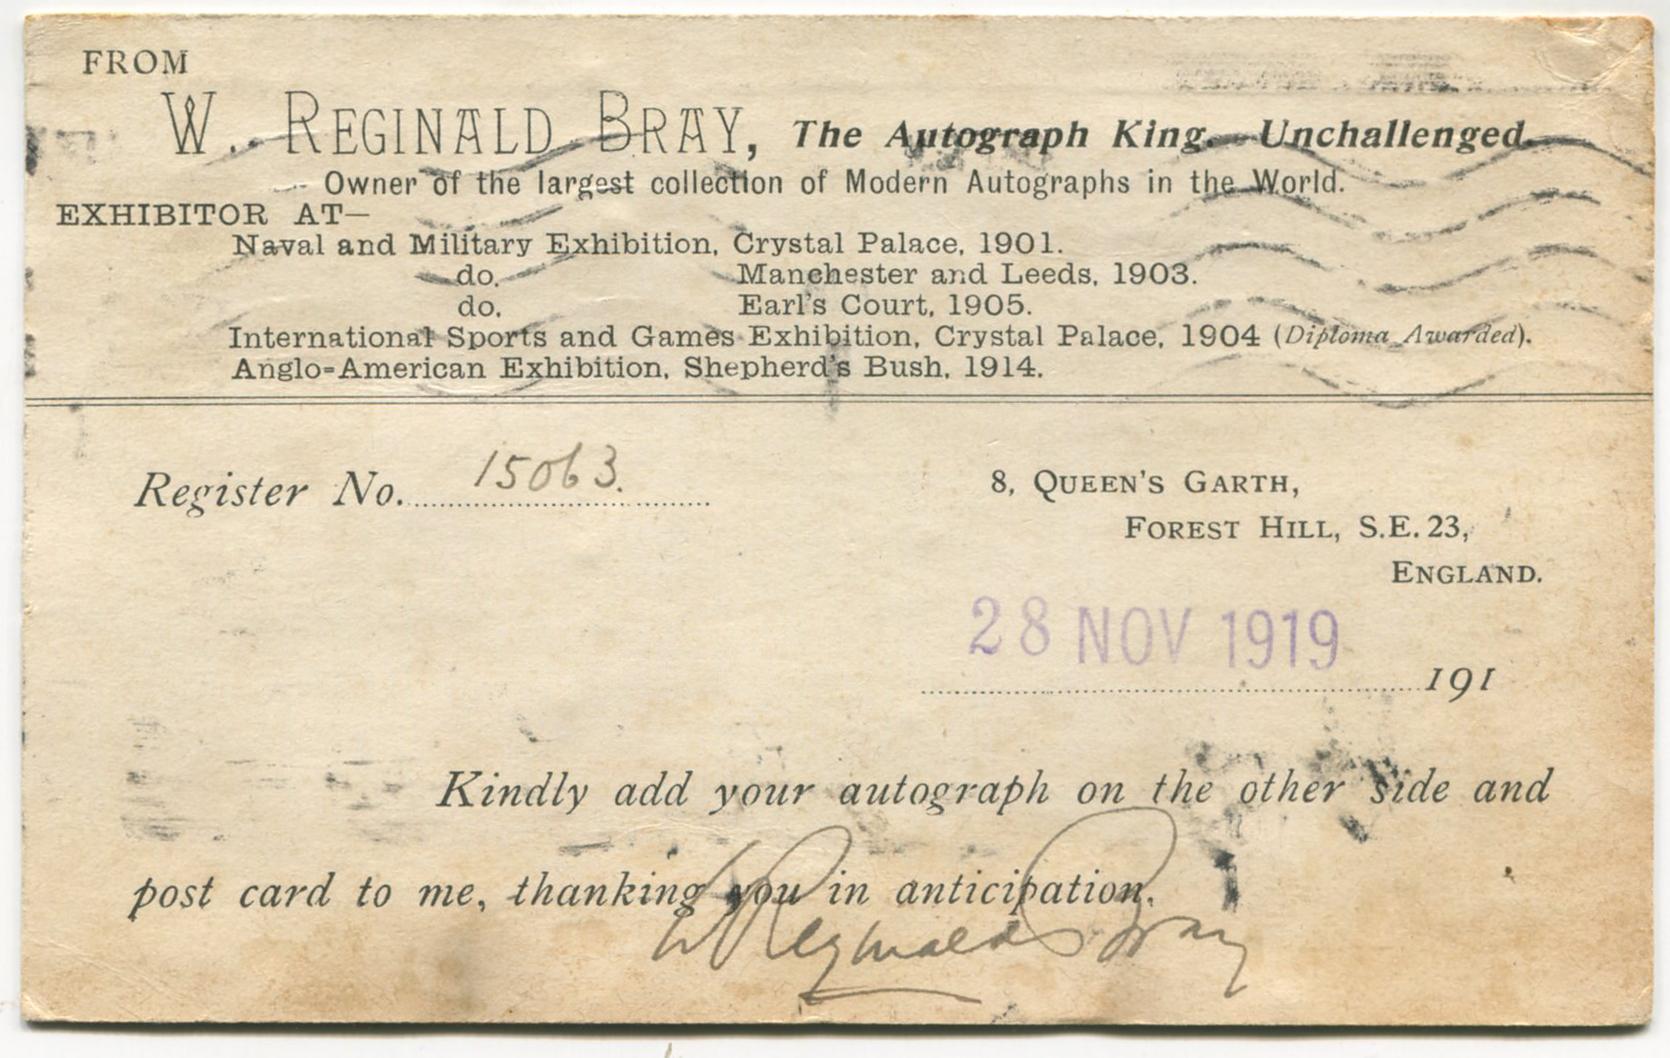 FROM
W. REGINALD BRAY, The Autograph King. Unchallenged.
Owner of the largest collection of Modern Autographs in the World.
EXHIBITOR AT—
Naval and Military Exhibition, Crystal Palace, 1901.
do. Manchester and Leeds, 1903.
do. Earl's Court, 1905.
International Sports and Games Exhibition, Crystal Palace, 1904 (Diploma Awarded).
Anglo=American Exhibition, Shepherd's Bush, 1914.
Register No. 15063.
8, QUEEN'S GARTH,
FOREST HILL, S.E. 23,
ENGLAND.
28 NOV 1919
191
Kindly add your autograph on the other side and
post card to me, thanking you in anticipation.
W Reginald Bray